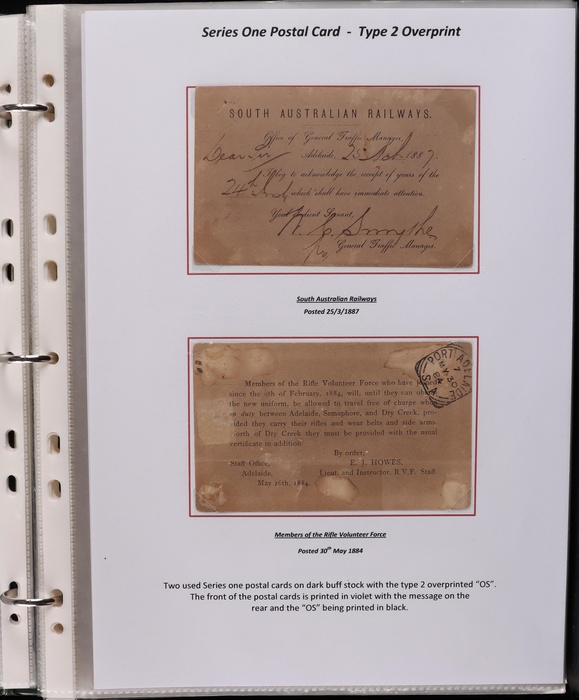 Series One Postal Card - Type 2 Overprint
SOUTH AUSTRALIAN RAILWAYS.
Office of General Traffic Manager,
Dear Sir Adelaide, 25 1887.
I beg to acknowledge the receipt of yours of the
24th which shall have immediate attention.
Your Obedient Servant,
Smythe
General Traffic Manager.
South Australian Railways
Posted 25/3/1887
PORT ADELAIDE
7
MY 30
84
S.A
Members of the Rifle Volunteer Force who have
since the of February, 1884, will, until they can
the new uniform, be allowed to travel free of charge
on duty between Adelaide, Semaphore, and Dry Creek, pro-
vided they carry their rifles and wear belts and side arms.
North of Dry Creek they must be provided with the usual
certificate in addition.
By order,
Staff Office, E. J. HOWES,
Adelaide, Lieut. and Instructor, R.V.F. Staff.
May 26th, 1884.
Members of the Rifle Volunteer Force
Posted 30th May 1884
Two used Series one postal cards on dark buff stock with the type 2 overprinted “OS”.
The front of the postal cards is printed in violet with the message on the
rear and the “OS” being printed in black.